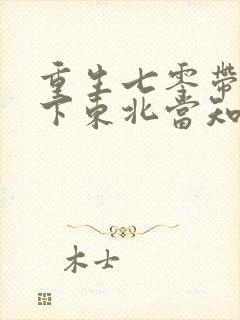 重生七零带
下东北当知
木士